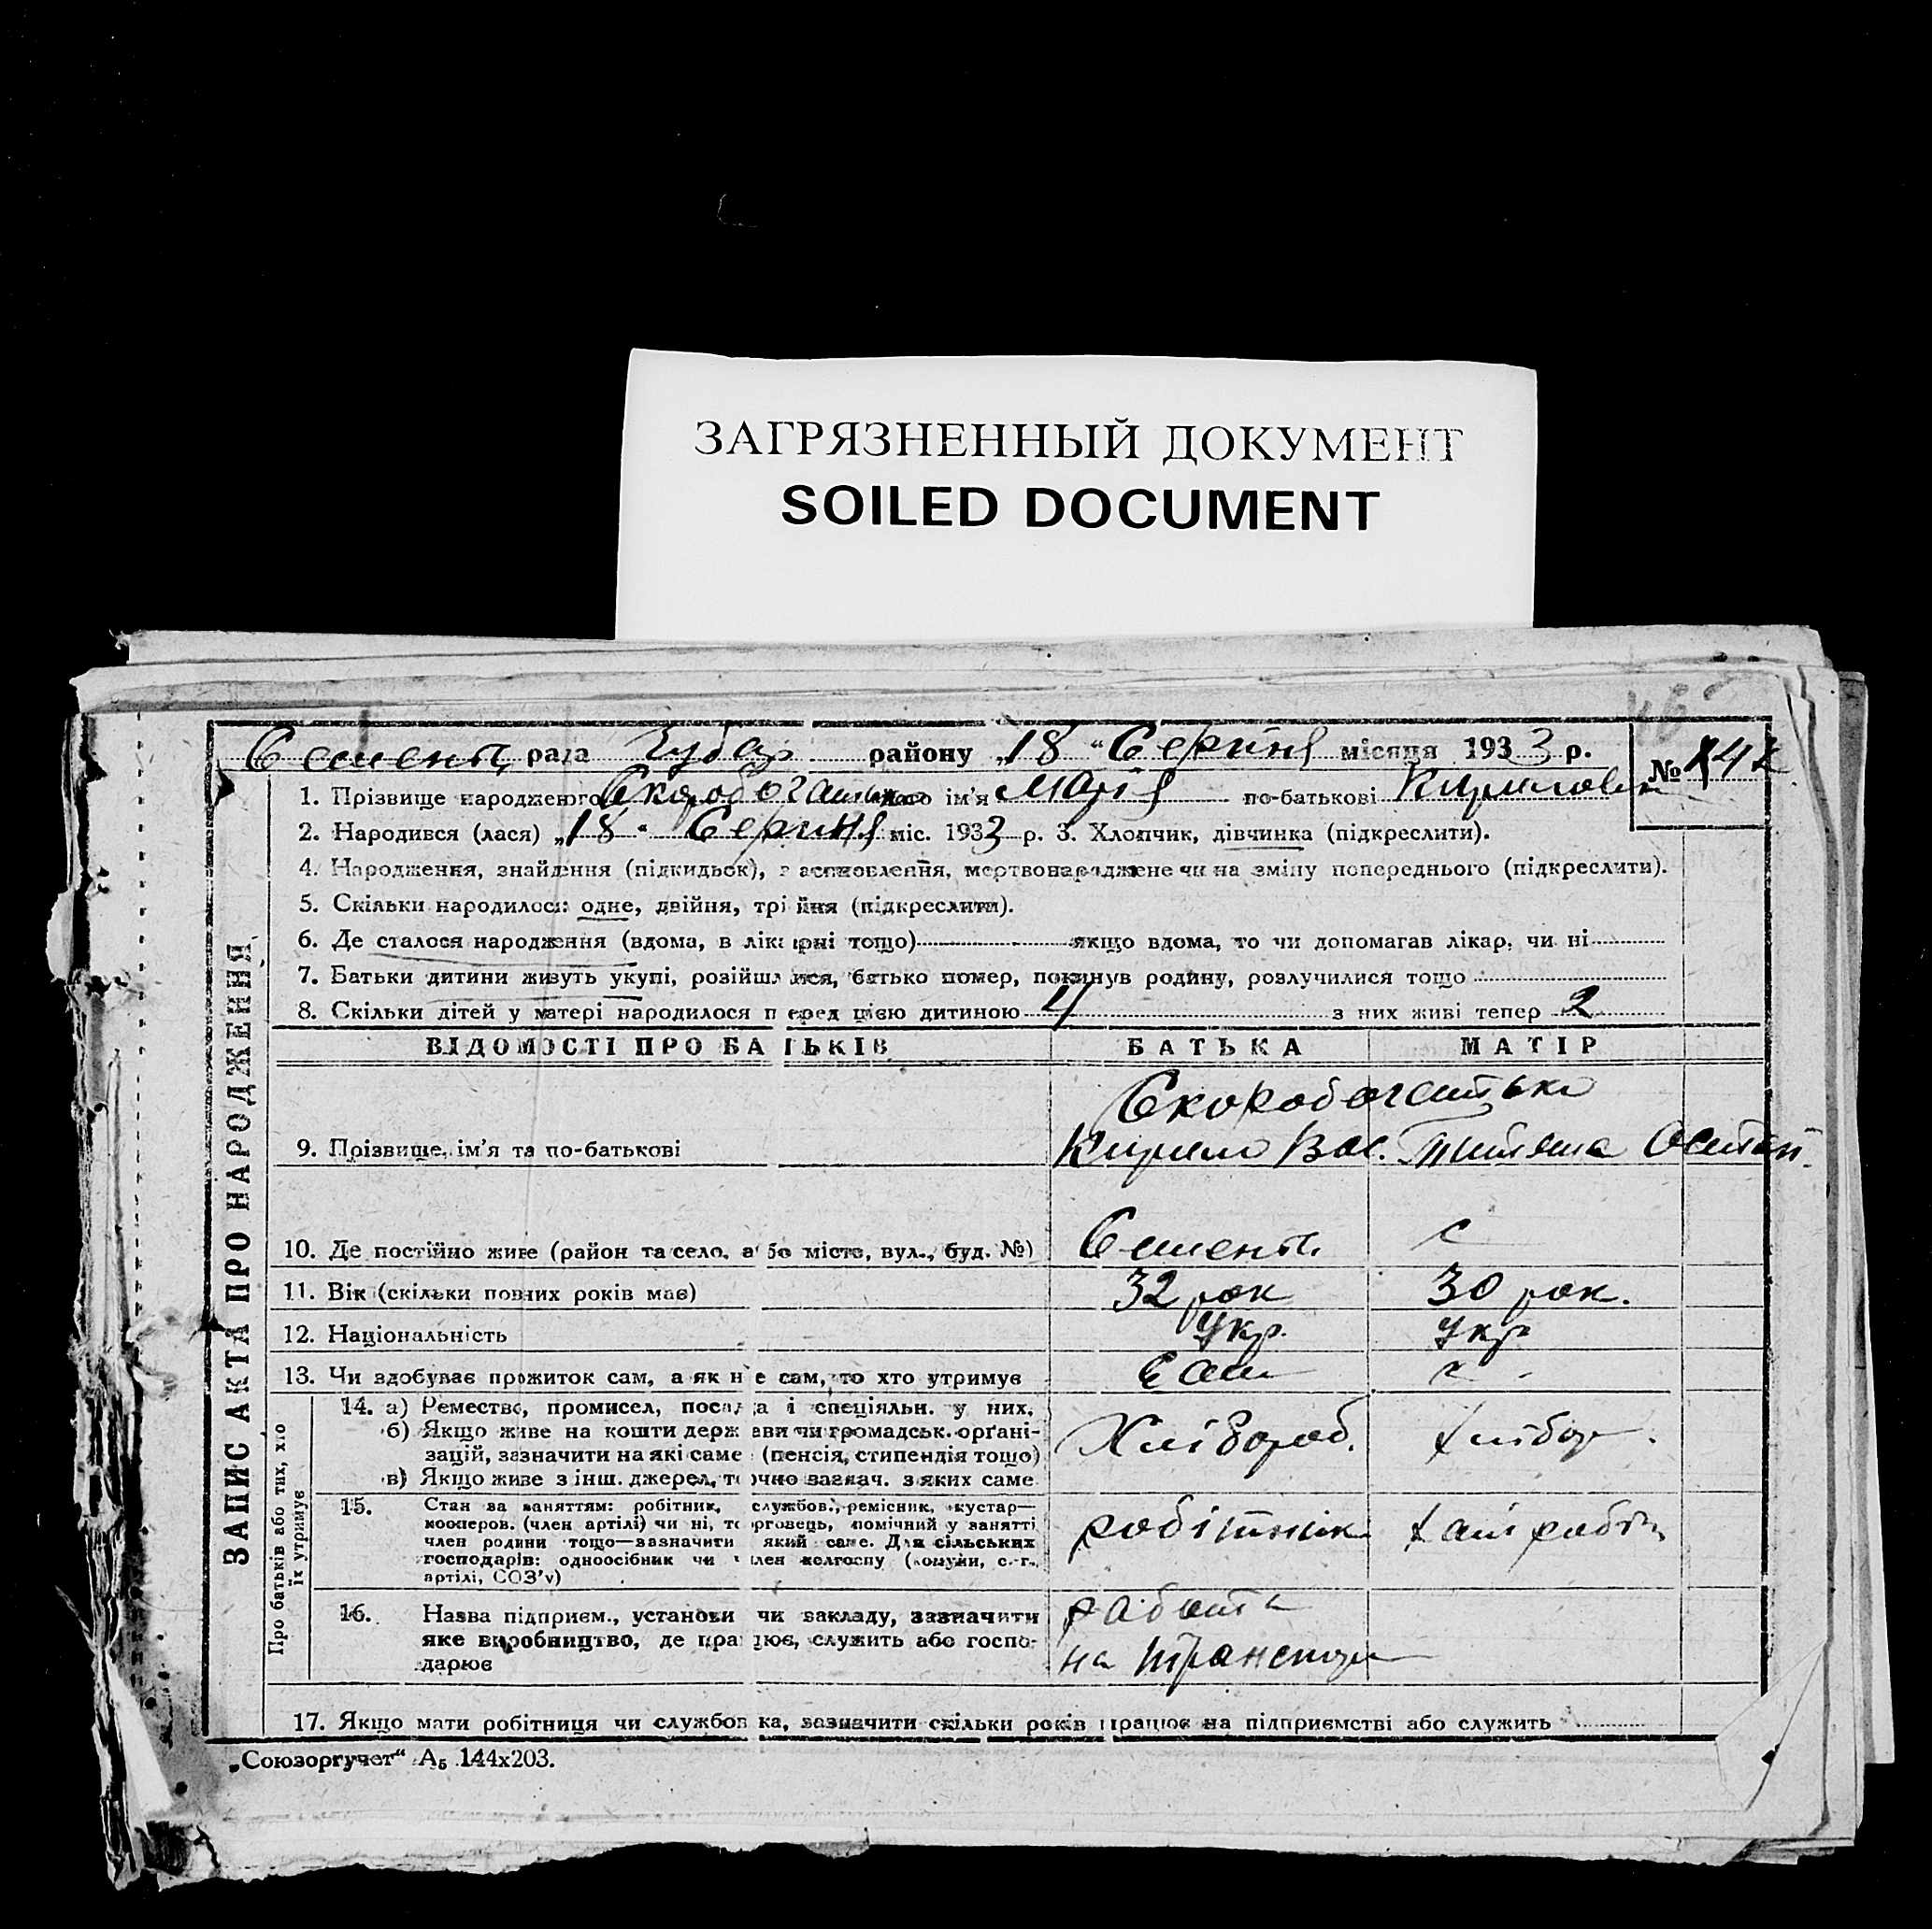 ЗАГРЯЗНЕННЫЙ ДОКУМЕНТ
SOILED DOCUMENT
рада Чубар району „18“ Серпня місяця 1933 р.
№ 142
ЗАПИС АКТА ПРО НАРОДЖЕННЯ
1. Прізвище народженого Скоробогатько ім'я Марія по-батькові Кирилов
2. Народився (лася) „18“ Серпня міс. 1933 р. 3. Хлопчик, дівчинка (підкреслити).
4. Народження, знайдення (підкидьок), мертвонароджене чи на зміну попереднього (підкреслити).
5. Скільки народилось: одне, двійня, трійня (підкреслити).
6. Де сталося народження (вдома, в лікарні тощо) якщо вдома, то чи допомагав лікар, чи ні
7. Батьки дитини живуть укупі, розійшлися, батько помер, покинув родину, розлучилися тощо
8. Скільки дітей у матері народилося перед цією дитиною 4 з них живі тепер 2
ВІДОМОСТІ ПРО БАТЬКІВ БАТЬКА МАТІР
Скоробогатько
9. Прізвище, ім'я та по-батькові Кирило Вас. Титяна Остап.
10. Де постійно живе (район та село, або місто, вул., буд. №)
11. Вік (скільки повних років має) 32 рок 30 рок.
12. Національність Укр. Укр
13. Чи здобуває прожиток сам, а як не сам, то хто утримує Сам
Про батьків або тих, хто їх утримує
14. а) Ремество, промисел, посада і спеціяльн. у них.
б) Якщо живе на кошти держави чи громадськ. орґані-
зацій, зазначити на які саме (пенсія, стипендія тощо) Хлібороб.
в) Якщо живе з інш. джерел, точно зазнач. з яких саме
15. Стан за заняттям: робітник, службов., ремісник, кустар—
кооперов. (член артілі) чи ні, торговець, помічний у занятті
член родини тощо—зазначити який саме. Для сільських робітник
господарів: одноосібник чи член колгоспу (комуни, с.-г.
артілі, СОЗ'у)
16. Назва підприєм., установи чи закладу, зазначити
яке виробництво, де працює, служить або госпо- на транспор
дарює
17. Якщо мати робітниця чи службовка, зазначити скільки років працює на підприємстві або служить
„Союзоргучет“ А5 144х203.